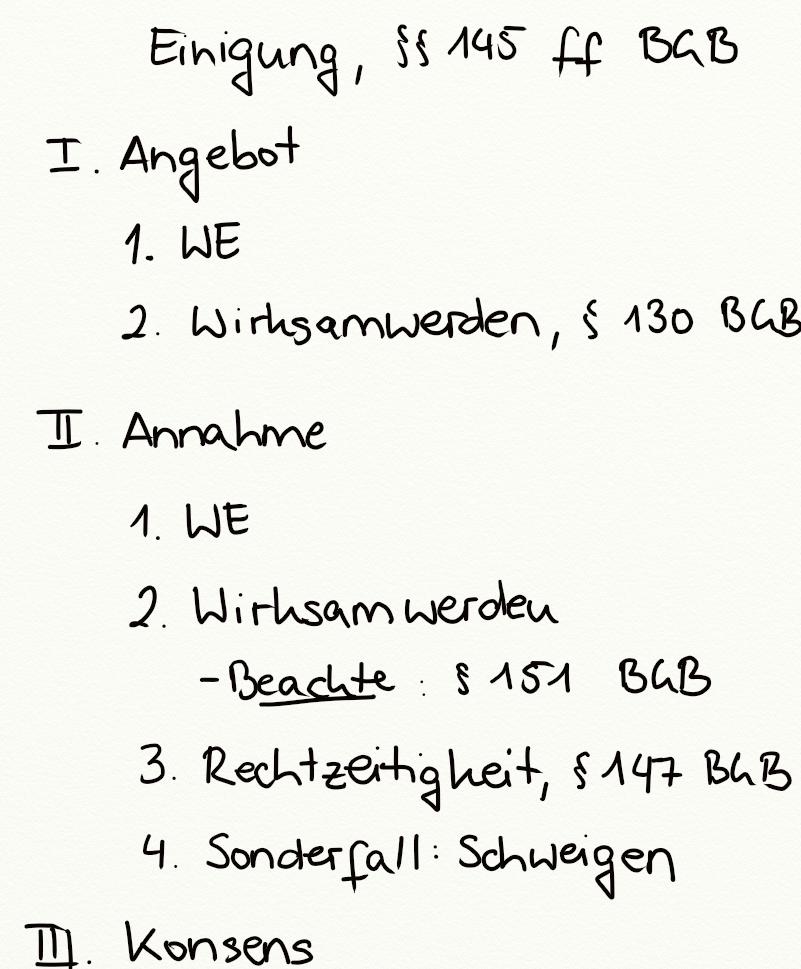 Einigung, §§ 145 ff BGB
I. Angebot
1. WE
2. Wirksamwerden, § 130 BGB
II. Annahme
1. WE
2. Wirksamwerden
- Beachte: § 151 BGB
3. Rechtzeitigkeit, § 147 BGB
4. Sonderfall: Schweigen
III. Konsens